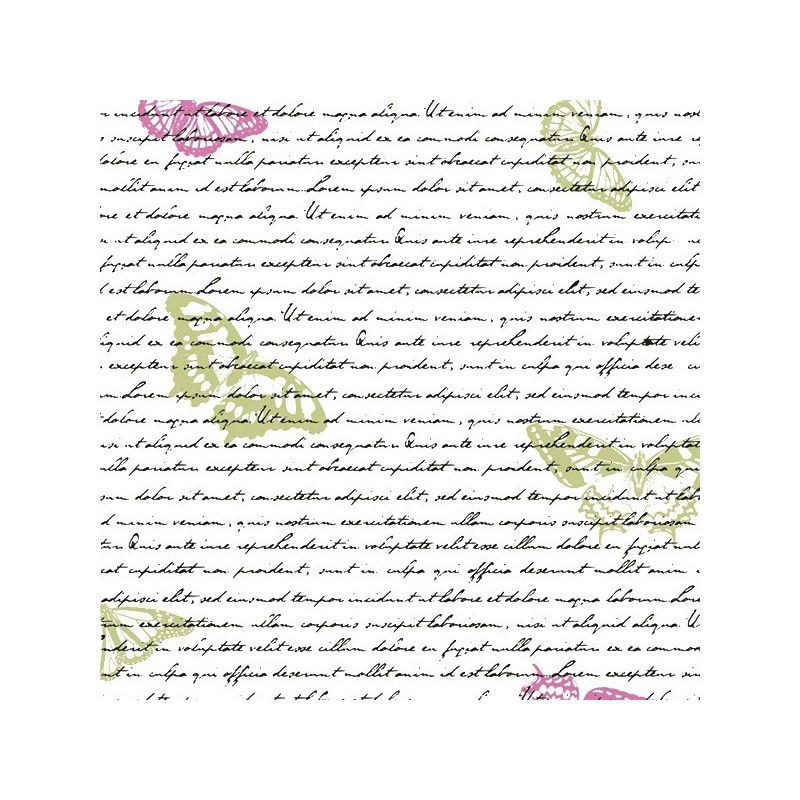 incidunt ut labore et dolore magna aliqua. Ut enim ad minim veniam, quis nost
s suscipit laboriosam, nisi ut aliquid ex ea commodi consequatur Quis aute iure re
dolore eu fugiat nulla pariatur excepteur sint obcaecat cupiditat non proident, su
mollit anim id est laborum. Lorem ipsum dolor sit amet, consectetur adipisci elit
re et dolore magna aliqua. Ut enim ad minim veniam, quis nostrum exercitati
ut aliquid ex ea commodi consequatur Quis aute iure reprehenderit in volup
fugiat nulla pariatur excepteur sint obcaecat cupiditat non proident, sunt in culp
d est laborum Lorem ipsum dolor sit amet, consectetur adipisci elit, sed eiusmod te
et dolore magna aliqua. Ut enim ad minim veniam, quis nostrum exercitatione
liquid ex ea commodi consequatur Quis aute iure reprehenderit in voluptate veli
excepteur sint obcaecat cupiditat non proident, sunt in culpa qui officia dese
m Lorem ipsum dolor sit amet, consectetur adipisci elit, sed eiusmod tempor inc
dolore magna aliqua. Ut enim ad minim veniam, quis nostrum exercitationem
isi ut aliquid ex ea commodi consequatur Quis aute iure reprehenderit in voluptat
ulla pariatur excepteur sint obcaecat cupiditat non proident, sunt in culpa qu
sum dolor sit amet, consectetur adipisci elit, sed eiusmod tempor incidunt ut lab
d minim veniam, quis nostrum exercitationem ullam corporis suscipit laboriosam
tur Quis aute iure reprehenderit in voluptate velit esse cillum dolore eu fugiat nul
cat cupiditat non proident, sunt in culpa qui officia deserunt mollit anim
adipisci elit, sed eiusmod tempor incidunt ut labore et dolore magna laborum Lore
rum exercitationem ullam corporis suscipit laboriosam, nisi ut aliquid aliqua. U
nderit in voluptate velit esse cillum dolore eu fugiat nulla pariatur ex ea commo
nt in culpa qui officia deserunt mollit anim id est laborum Lorem excepteur sin